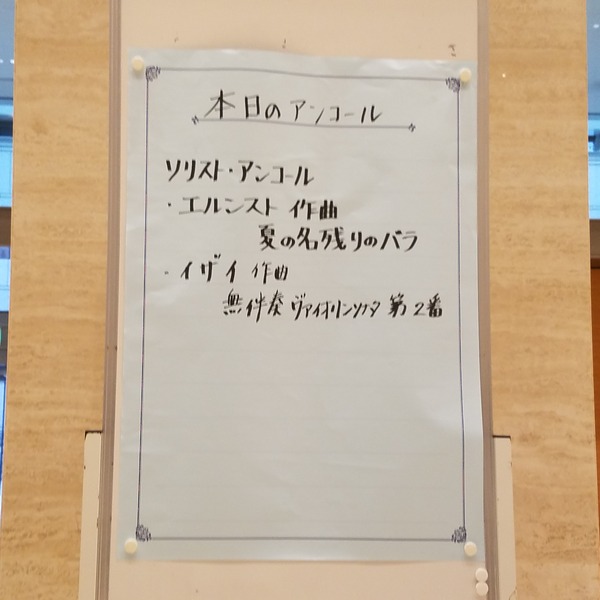 本日のアンコール
ソリスト・アンコール
・エルンスト 作曲
夏の名残りのバラ
・イザイ 作曲
無伴奏 ヴァイオリンソナタ 第2番